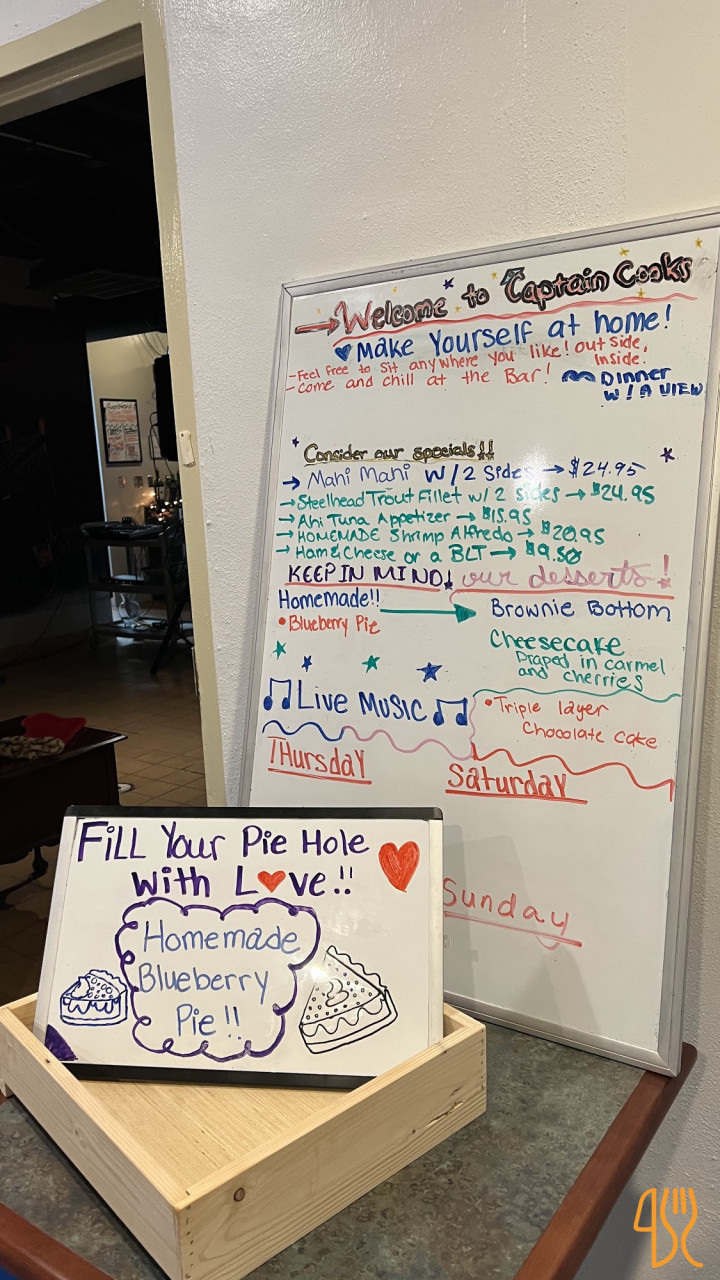 Welcome to Captain Cooks
Make Yourself at home!
-Feel free to sit anywhere you like! outside,
inside.
-come and chill at the Bar!
Dinner
W/ A VIEW
Consider our specials!!
Mahi Mahi w/2 Sides → $24.95
→Steelhead Trout Fillet w/ 2 sides → $24.95
→Ahi Tuna Appetizer → $15.95
→HOMEMADE Shrimp Alfredo → $20.95
→Ham & Cheese or a BLT → $9.50
KEEP IN MIND, our desserts!
Homemade!!
•Blueberry Pie
Brownie Bottom
Cheesecake
Draped in carmel
and cherries
•Triple layer
Chocolate cake
Live Music
Thursday
Saturday
Sunday
Fill Your Pie Hole
with Love!!
Homemade
Blueberry
Pie!!